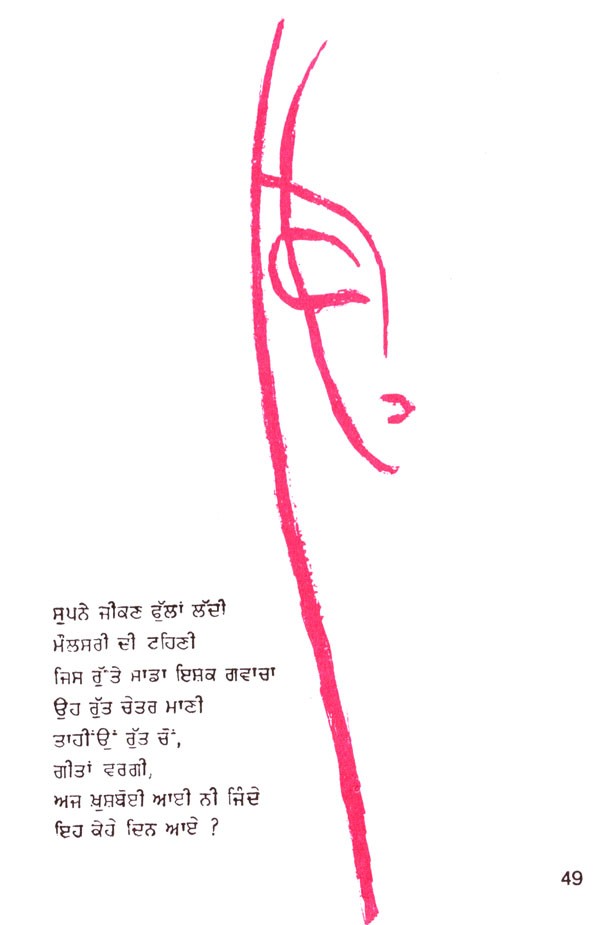 ਸੁਪਨੇ ਜੀਕਣ ਫੁੱਲਾਂ ਲੱਦੀ
ਮੌਲਸਰੀ ਦੀ ਟਹਿਣੀ
ਜਿਸ ਰੁੱਤੇ ਸਾਡਾ ਇਸ਼ਕ ਗਵਾਚਾ
ਉਹ ਰੁੱਤ ਚੇਤਰ ਮਾਣੀ
ਤਾਹੀਂਉਂ ਰੁੱਤ ਚੋਂ,
ਗੀਤਾਂ ਵਰਗੀ,
ਅਜ ਖ਼ੁਸ਼ਬੋਈ ਆਈ ਨੀ ਜਿੰਦੇ
ਇਹ ਕੇਹੇ ਦਿਨ ਆਏ ?
49